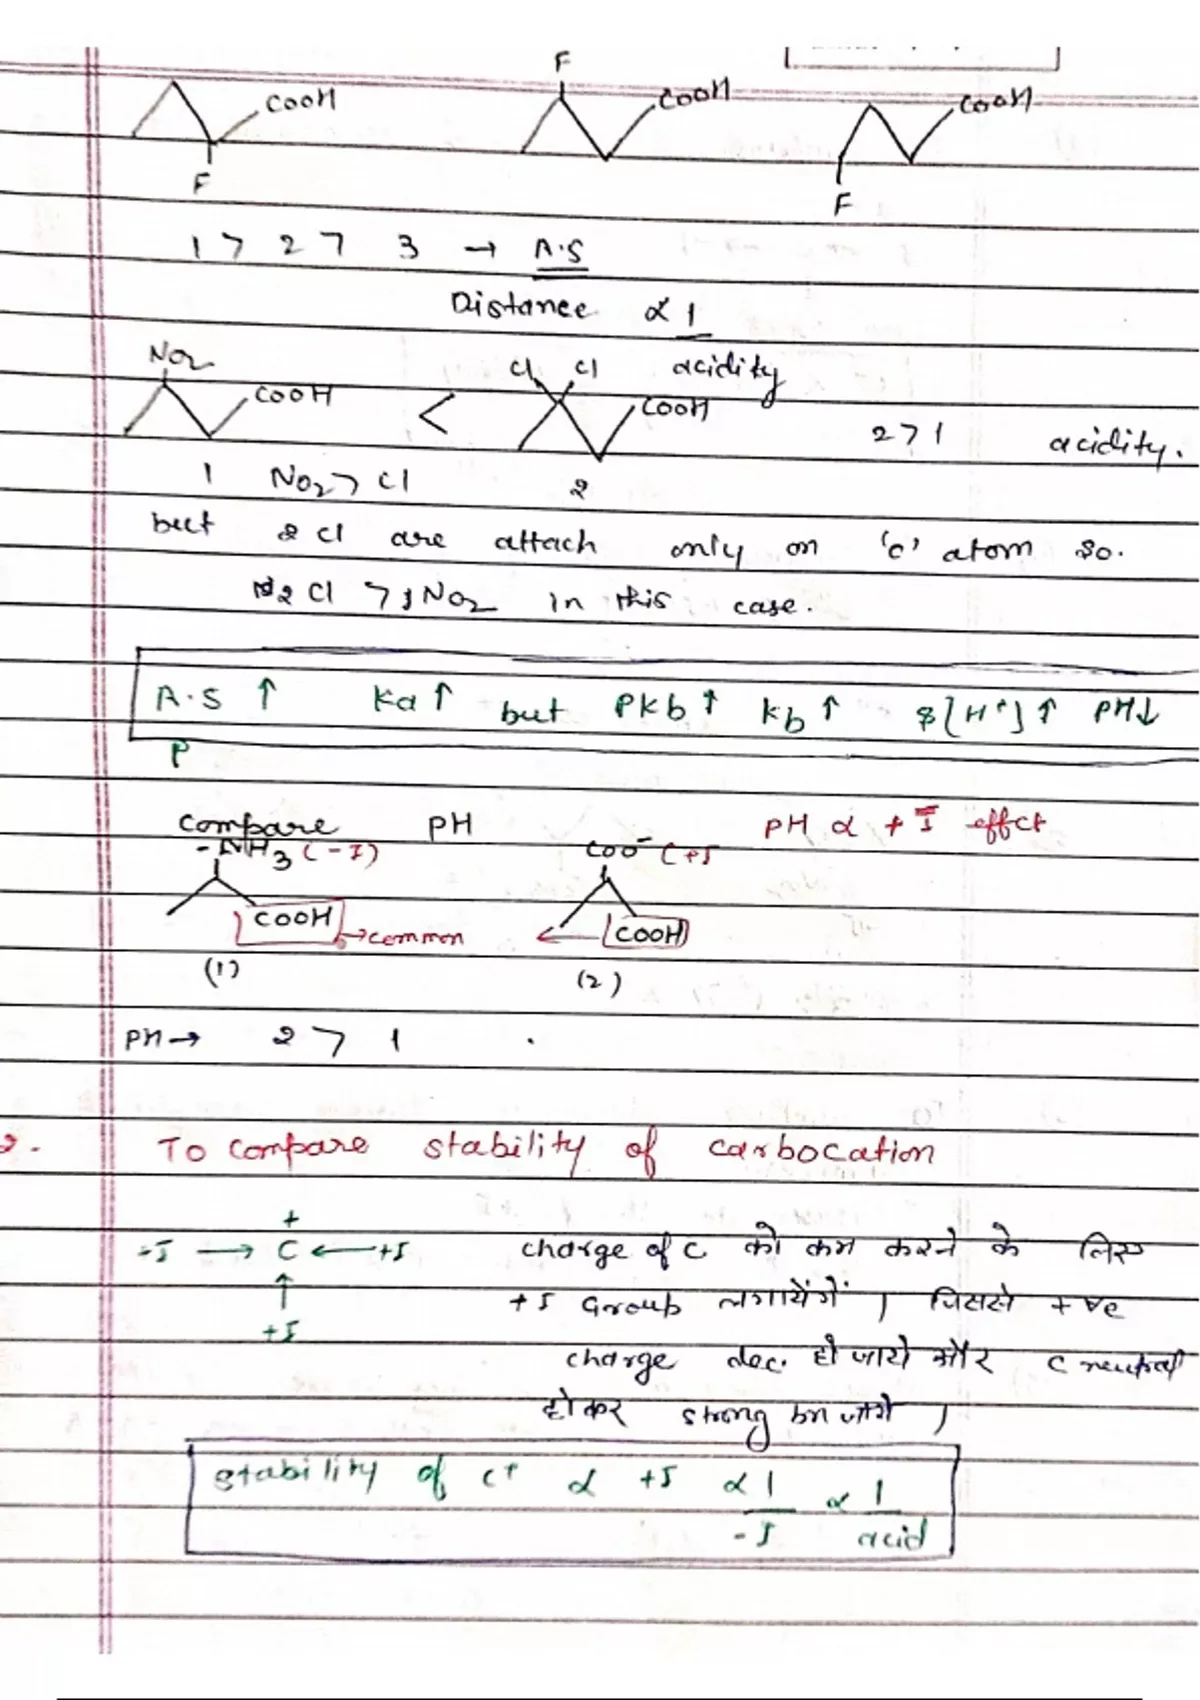 COOH F COOH COOH
F F
1 > 2 > 3 → A.S
Distance ∝ 1
acidity
NO2 COOH < Cl Cl COOH 2 > 1 acidity.
1 NO2 > Cl 2
but 2 Cl are attach only on 'c' atom so.
2 Cl > 1 NO2 in this case.
A.S ↑ Ka ↑ but Pkb ↑ kb ↑ & [H+] ↑ PH↓
P
compare PH PH ∝ + I effct
- NH3 (-I) COO- (+I
COOH →common ← COOH
(1) (2)
PH → 2 > 1 .
2. To compare stability of carbocation
+
-I → C ← +I charge of C को कम करने के लिए
↑ +I Group लगायेंगें। जिससे +ve
+I charge dec. हो जाये और C neutral
होकर strong बन जाये।
stability of C+ ∝ +I ∝ 1 ∝ 1
-I acid